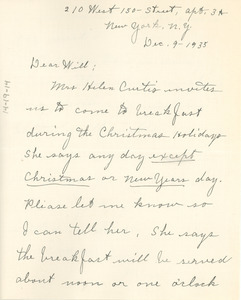 210 West 150 Street, apt. 3A
New York, N.Y.
Dec. 9-1935
Dear Will:
Mrs Helen Curtis invites
us to come to breakfast
during the Christmas Holidays
She says any day except
Christmas or New Years day.
Please let me know so
I can tell her. She says
the breakfast will be served
about noon or one o'clock